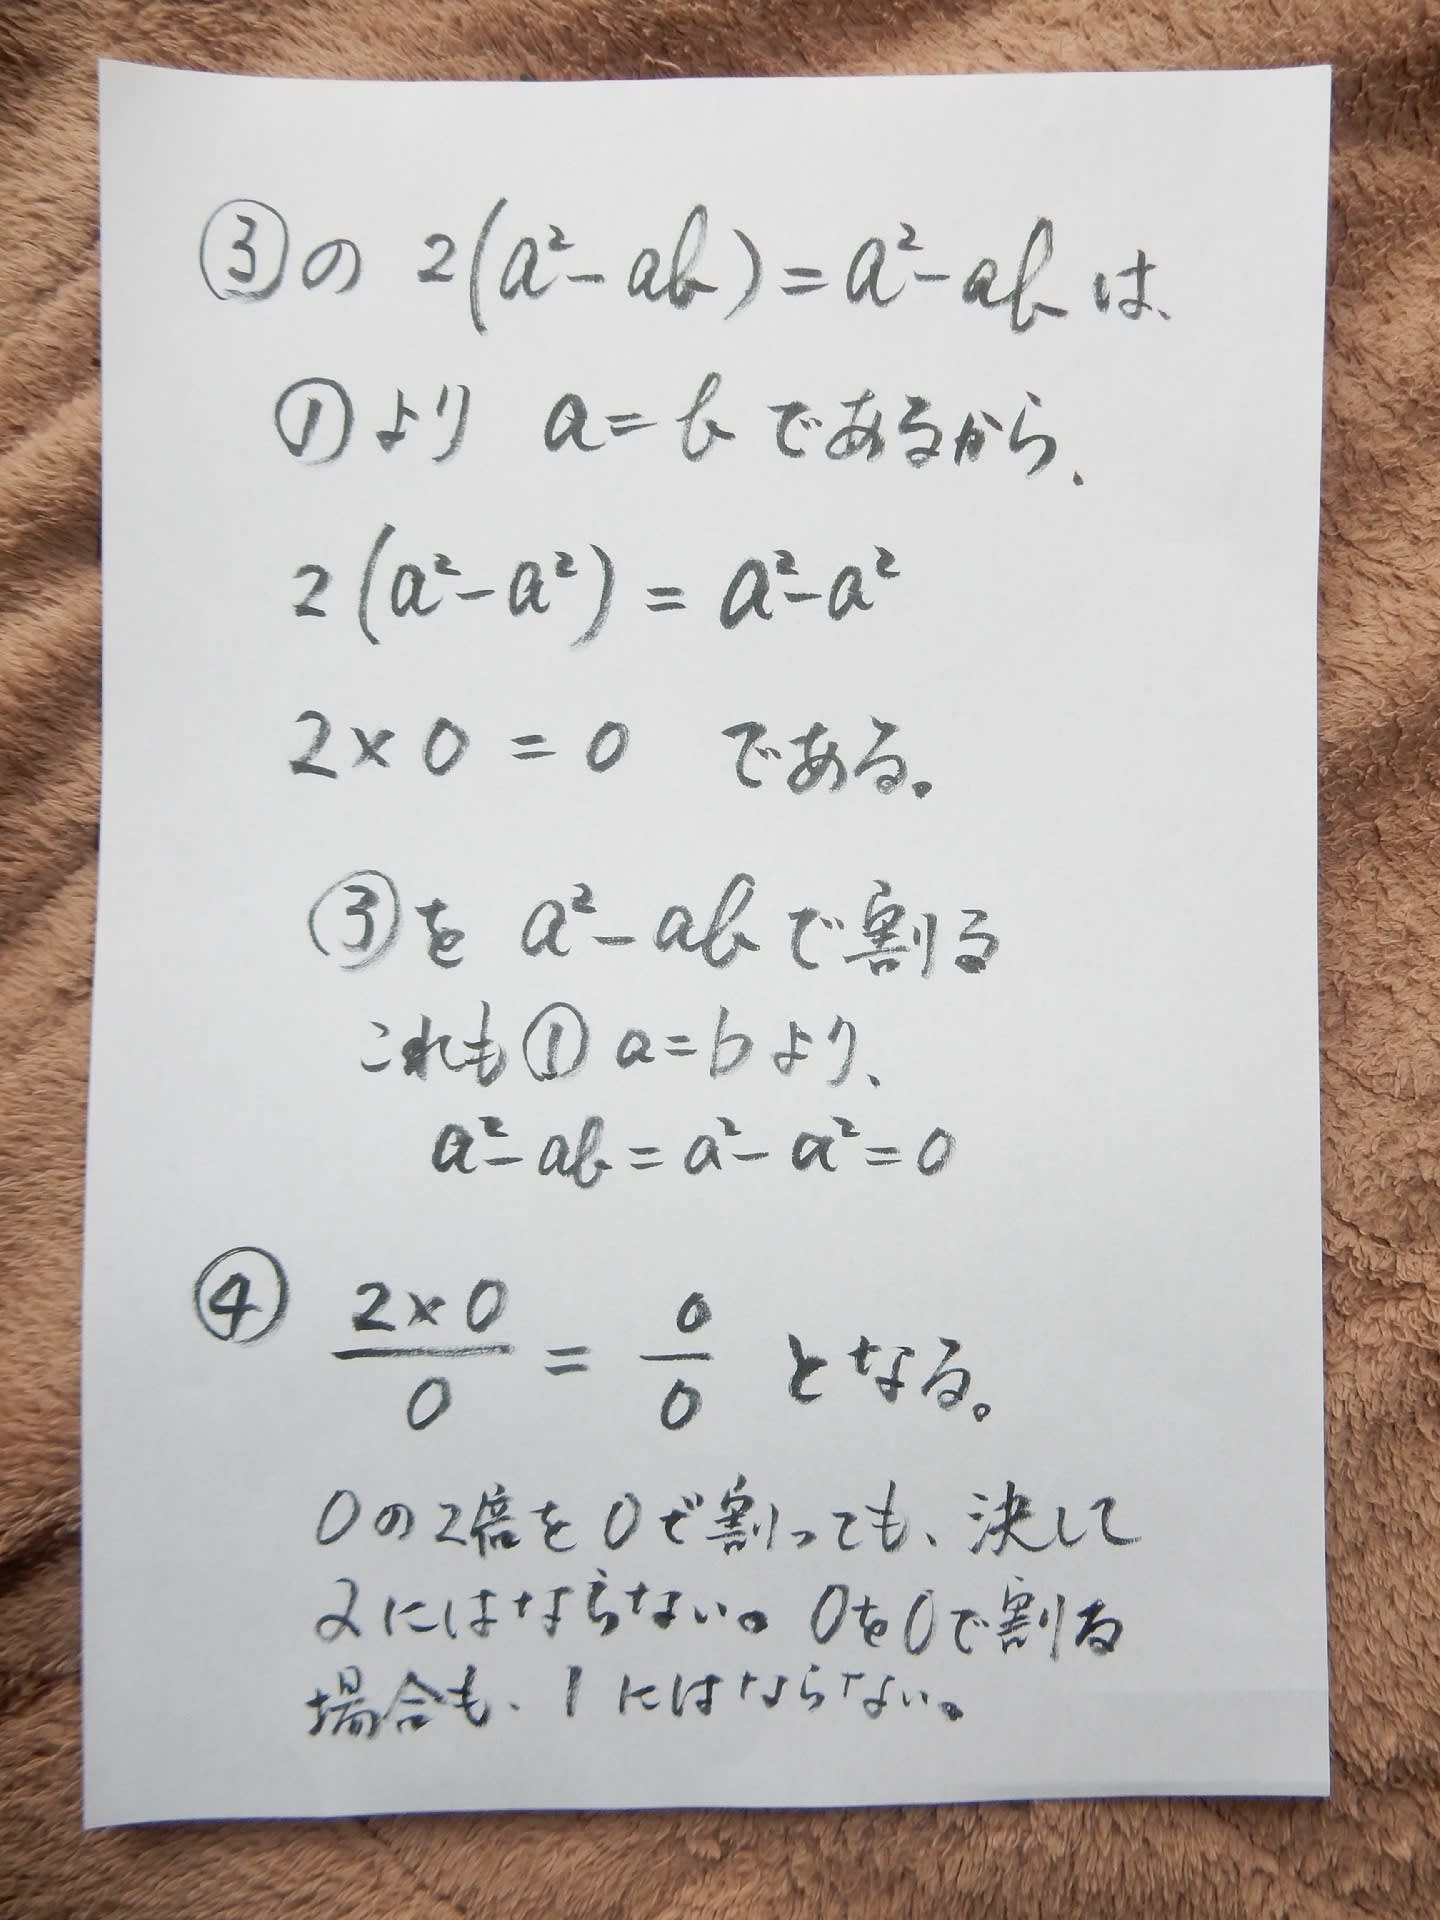 ③の 2(a²-ab)=a²-abは、
①より a=bであるから、
2(a²-a²)=a²-a²
2×0=0 である。
③を a²-abで割る
これも① a=bより、
a²-ab=a²-a²=0
④ 2×0/0 = 0/0 となる。
0の2倍を0で割っても、決して
2にはならない。0を0で割る
場合も、1にはならない。